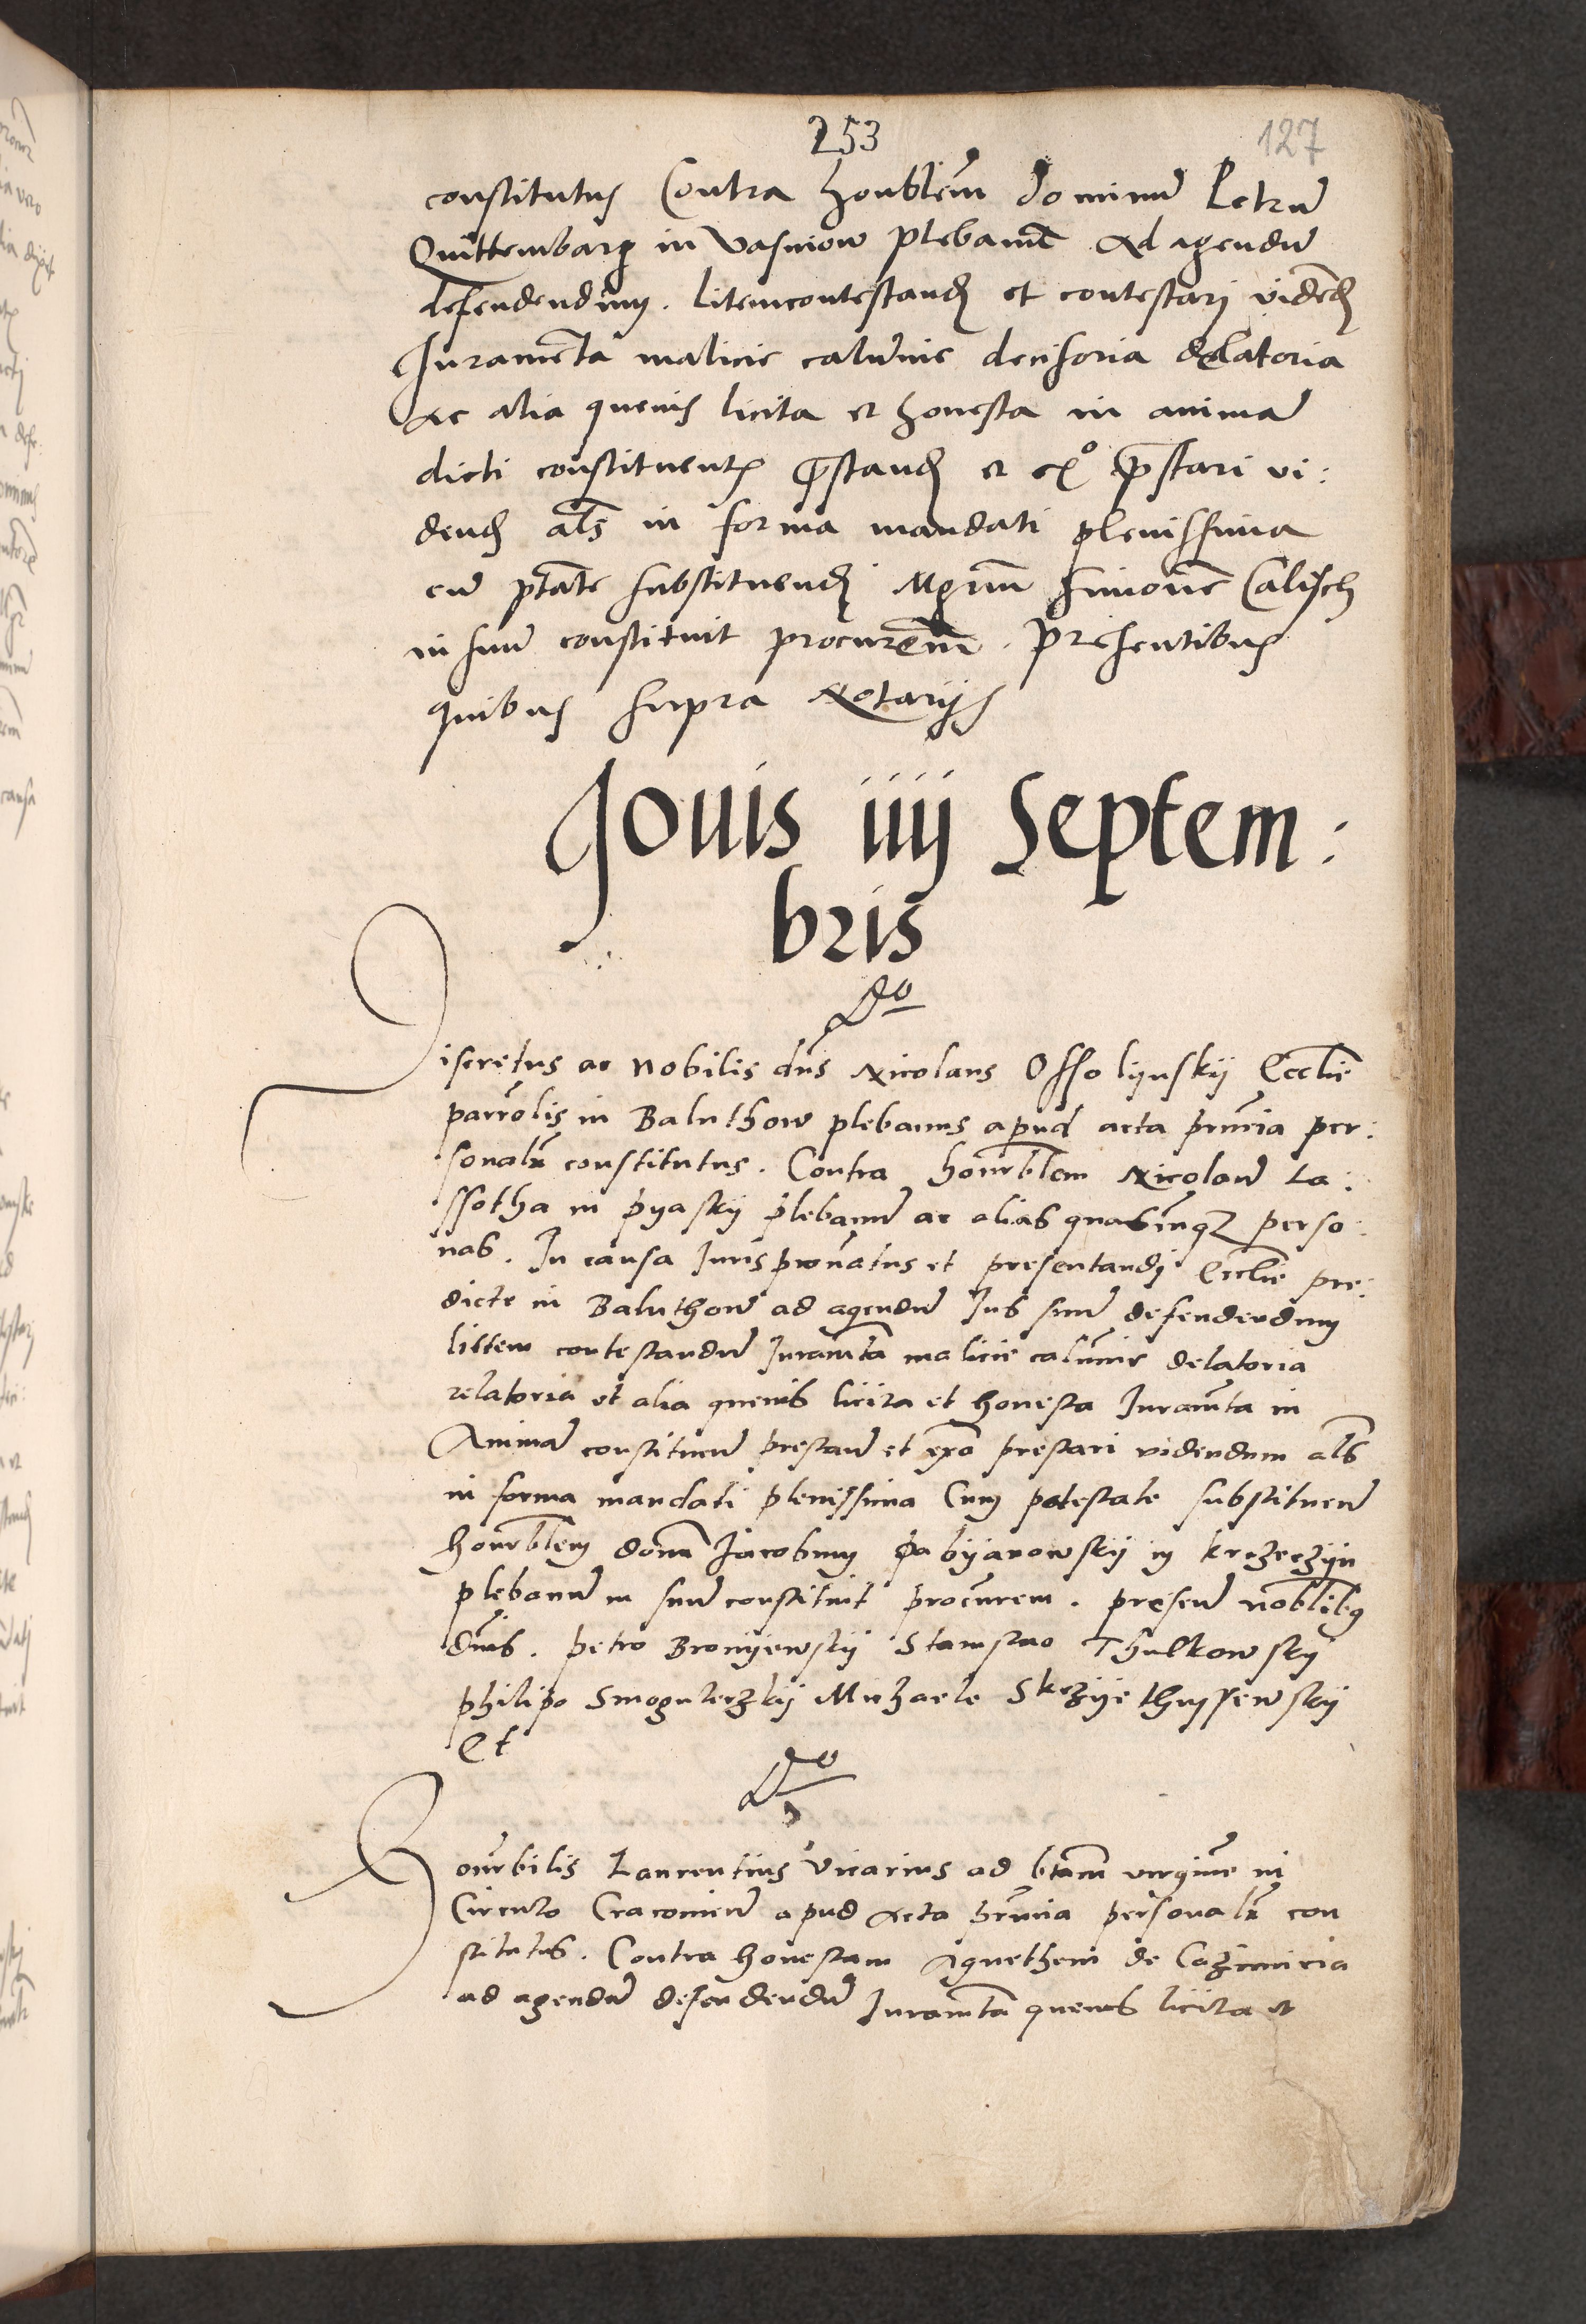 253
127
constitutus Contra honblem dominu Petru
Quittembarg in Vasniow plebanu Ad agendu
defendendum. litemcontestand et contestari vidend
Juramenta malicie calunie decisoria delatoria
ac alia quevis licita et honesta in anima
dicti constituent prestand et exo prestari vi:
dend als in forma mandati plenissima
cu ptate substituendi Mgrum Simone Calisch
in suu constituit procurem. presentibus
quibus supra Notarijs
Jouis iiij Septem:
bris
iscretus ac Nobilis dns Nicolaus Ossolijnskij Ecclie
parrolis in Baluthow plebanus apud acta pnia per:
sonalr constitutus. Contra honrblem Nicolau La:
ssotha in pyaskij plebanu ac alias quascunqz perso:
nas. In causa Juris pronatus et presentandj Ecclie pre:
dicte in Baluthow ad agendu Jus suu defendendum
littem contestandu Juramta malicie calunie delatoria
relatoria et alia quevis licita et honesta Juramta in
Anima constituen prestan et exo prestari videndum als
in forma mandati plenissima Cum potestate substituen
honrblem donu Jacobum pabyanowskij in krzeczijn
plebanu in suu constituit procurem. presen noblibq
dnis. petro Bronijewskij Stanislao Thulkowskij
philipo Smoguleczkij Michaele Skrzijethussewskij
Et
onrbilis Laurentius Vicarius ad btam virgine in
Circulo Cracovien apud Acta pnia personalr con
stitutus. Contra honestam Agnethem de Cazimiria
ad agendu defendendu Juramta quevis licita et